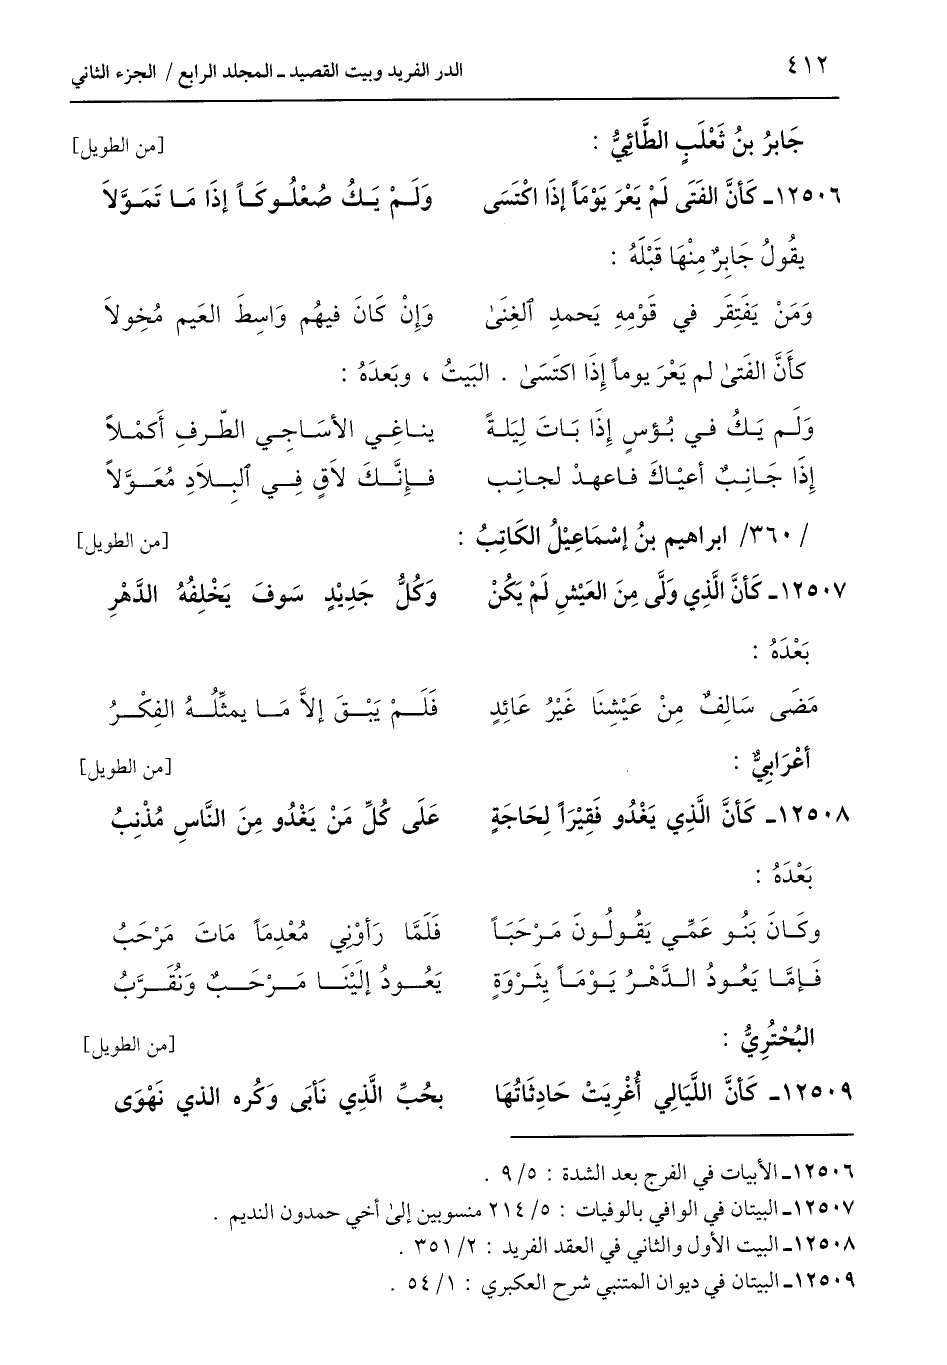 ٤١٢ الدر الفريد وبيت القصيد ـ المجلد الرابع / الجزء الثاني
جَابرُ بنُ ثَعْلَبٍ الطَّائِيُّ : [من الطويل]
١٢٥٠٦ـ كَأنَّ الفَتَى لَمْ يَعْرَ يَوْمَاً إذَا اكْتَسَى وَلَمْ يَكُ صُعْلُوكَاً إذَا مَا تَمَوَّلاَ
يقُولُ جَابِرٌ مِنْهَا قَبْلَهُ :
وَمَنْ يَفْتَقِر في قَوْمِهِ يَحمدِ ٱلغِنَىٰ وَإِنْ كَانَ فيهُم وَاسِطَ العَيم مُخولاَ
كأَنَّ الفَتىٰ لم يَعْرَ يوماً إِذَا اكتَسَىٰ . البَيتُ ، وبَعدَهُ :
وَلَم يَكُ في بُؤسٍ إِذَا بَاتَ لَيلَةً يناغِي الأسَاجِي الطّرفِ أَكمْلاً
إِذَا جَانِبٌ أعيَاكَ فاعهدْ لجانِب فإنَّكَ لاَقٍ فِي ٱلبِلاَدِ مُعَوَّلاً
/ ٣٦٠/ ابراهيم بنُ إسْمَاعِيْلُ الكَاتِبُ : [من الطويل]
١٢٥٠٧ـ كَأنَّ الَّذِي وَلَّى مِنَ العَيْشِ لَمْ يَكُنْ وَكُلُّ جَدِيْدٍ سَوفَ يَخْلِفُهُ الدَّهْرِ
بَعْدَهُ :
مَضَى سَالِفٌ مِنْ عَيْشِنَا غَيْرُ عَائِدٍ فَلَمْ يَبْقَ إلاَّ مَا يمثِّلُهُ الفِكْرُ
أعْرَابِيٌّ : [من الطويل]
١٢٥٠٨ـ كَأنَّ الَّذِي يَغْدُو فَقِيْرَاً لِحَاجَةٍ عَلَى كُلِّ مَنْ يَغْدُو مِنَ النَّاسِ مُذْنِبُ
بَعْدَهُ :
وكَانَ بَنُو عَمِّي يَقُولُونَ مَرْحَبَاً فَلَمَّا رَأوْنِي مُعْدِمَاً مَاتَ مَرْحَبُ
فَإمَّا يَعُودُ الدَّهْرُ يَوْمَاً بِثَرْوَةٍ يَعُودُ إلَيْنَا مَرْحَبٌ وَنُقَرَّبُ
البُحْتُرِيُّ : [من الطويل]
١٢٥٠٩ـ كَأنَّ اللَّيَالِي أُغْرِيَتْ حَادِثَاتُهَا بحُبِّ الَّذِي نَأبَى وَكُره الذي نَهْوَى
١٢٥٠٦ـ الأبيات في الفرج بعد الشدة : ٥/ ٩ .
١٢٥٠٧ـ البيتان في الوافي بالوفيات : ٥/ ٢١٤ منسوبين إلىٰ أخي حمدون النديم .
١٢٥٠٨ـ البيت الأول والثاني في العقد الفريد : ٢/ ٣٥١ .
١٢٥٠٩ـ البيتان في ديوان المتنبي شرح العكبري : ١/ ٥٤ .